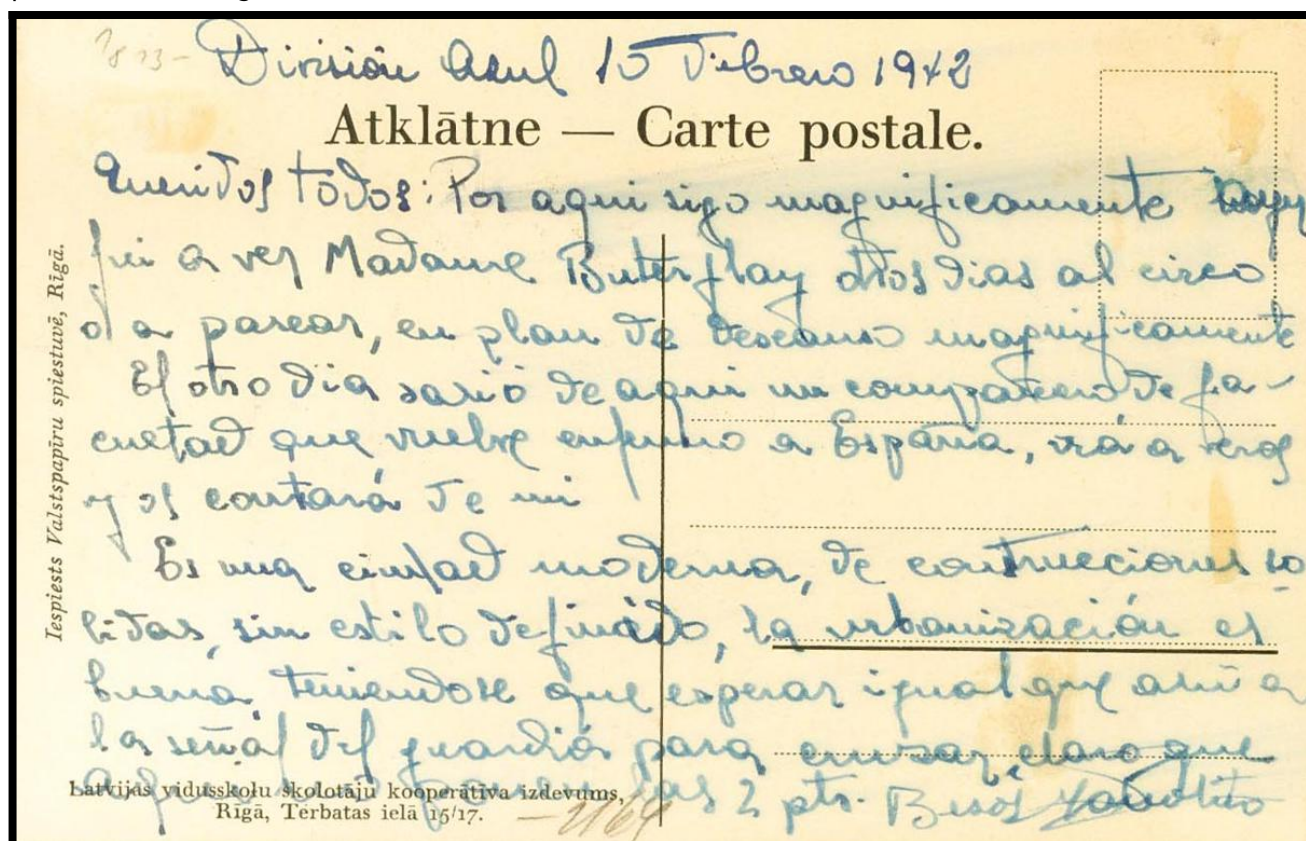 División Azul 15 Febrero 1942
Atklātne — Carte postale.
Queridos todos: Por aqui sigo magnificamente
fui a ver Madame Buterflay otros dias al circo
o a pasear, en plan de descanso magnificamente
El otro dia salió de aqui un compañero de fa-
cultad que vuelve enfermo a España, irá a veros
y os contará de mi
Es una ciudad moderna, de construcciones so
lidas, sin estilo definido, la urbanización es
buena, teniendose que esperar igual que ahi a
la señal del guardia para cruzar, claro que
aqui las 2 pts. Besos
Iespiests Valstspapīru spiestuvē, Rīgā.
Latvijas vidusskolu skolotāju kooperātīva izdevums,
Rīgā, Tērbatas ielā 15/17.